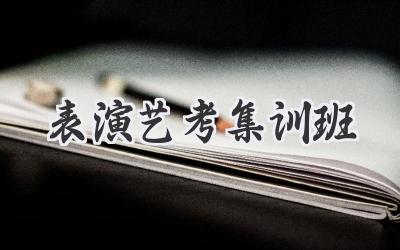 表演艺考集训班